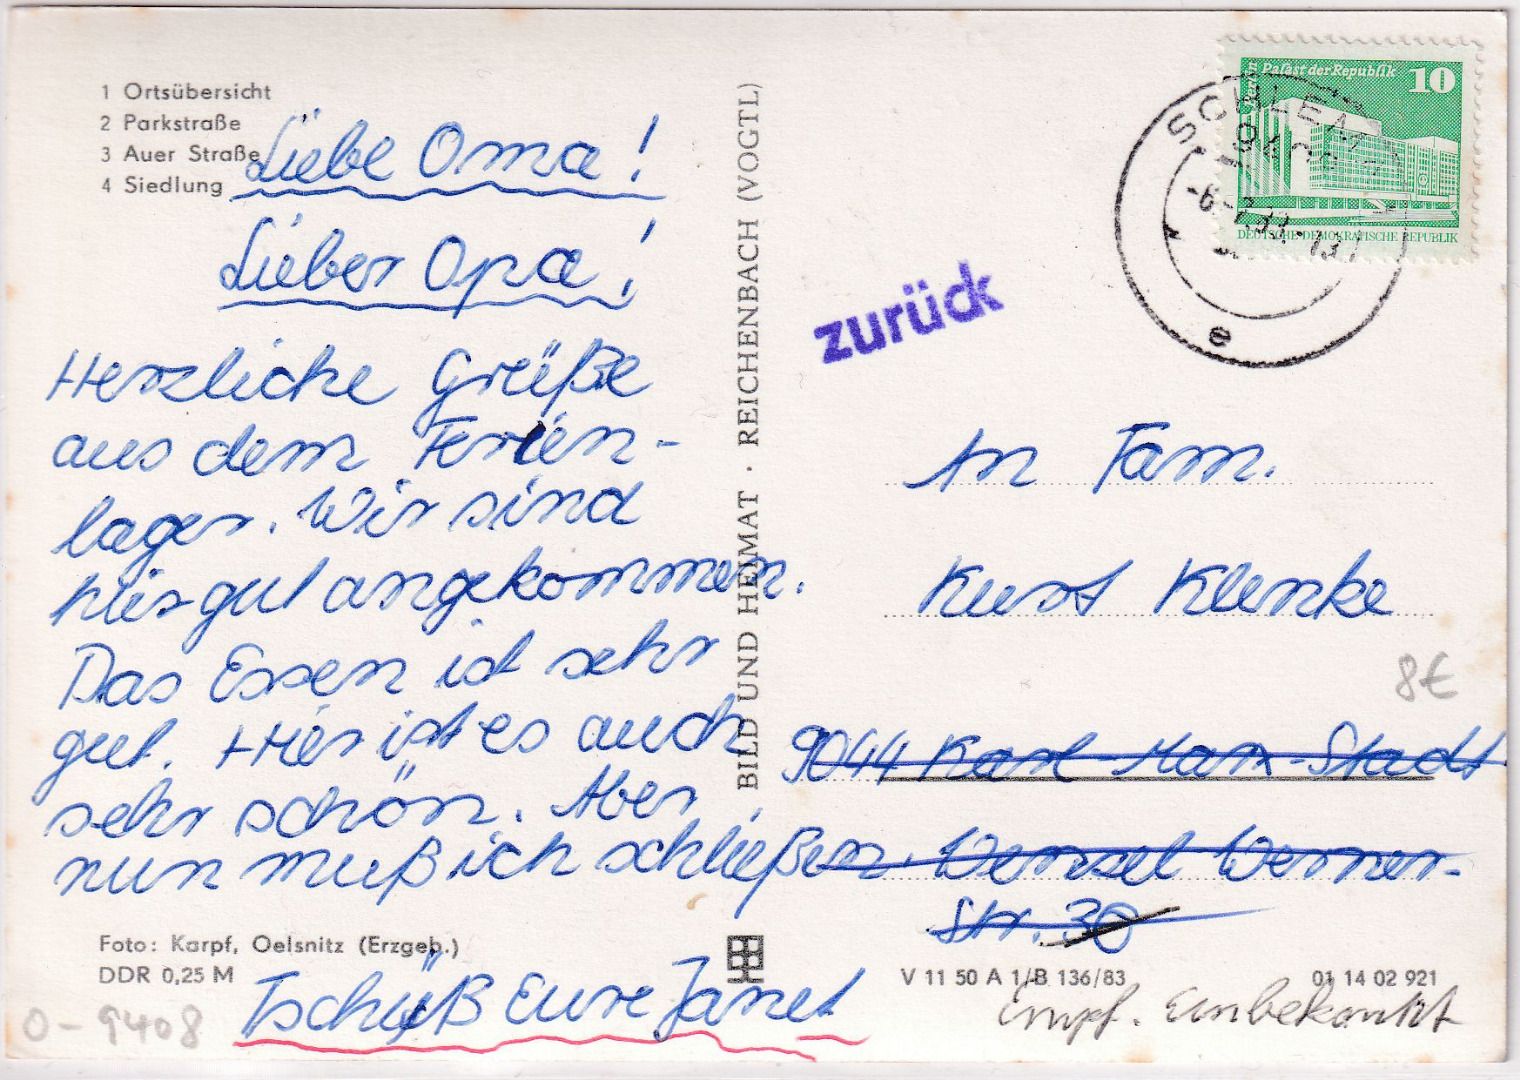 1 Ortsübersicht
2 Parkstraße
3 Auer Straße
4 Siedlung
Liebe Oma!
Lieber Opa!
Herzliche Grüße
aus dem Ferien-
lager. Wir sind
hier gut angekommen.
Das Essen ist sehr
gut. Hier ist es auch
sehr schön. Aber
nun muß ich schließen.
Tschüß Eure Janet
Foto: Karpf, Oelsnitz (Erzgeb.)
DDR 0,25 M
0-9408
BILD UND HEIMAT · REICHENBACH (VOGTL)
Berlin Palast der Republik 10
DEUTSCHE DEMOKRATISCHE REPUBLIK
SCHLEMA
9408
e
zurück
An Fam.
Kurt Klenke
8€
9044 Karl-Marx-Stadt
Wenzel Werner-
Str. 30
V 11 50 A 1/B 136/83
01 14 02 921
Empf. Unbekannt